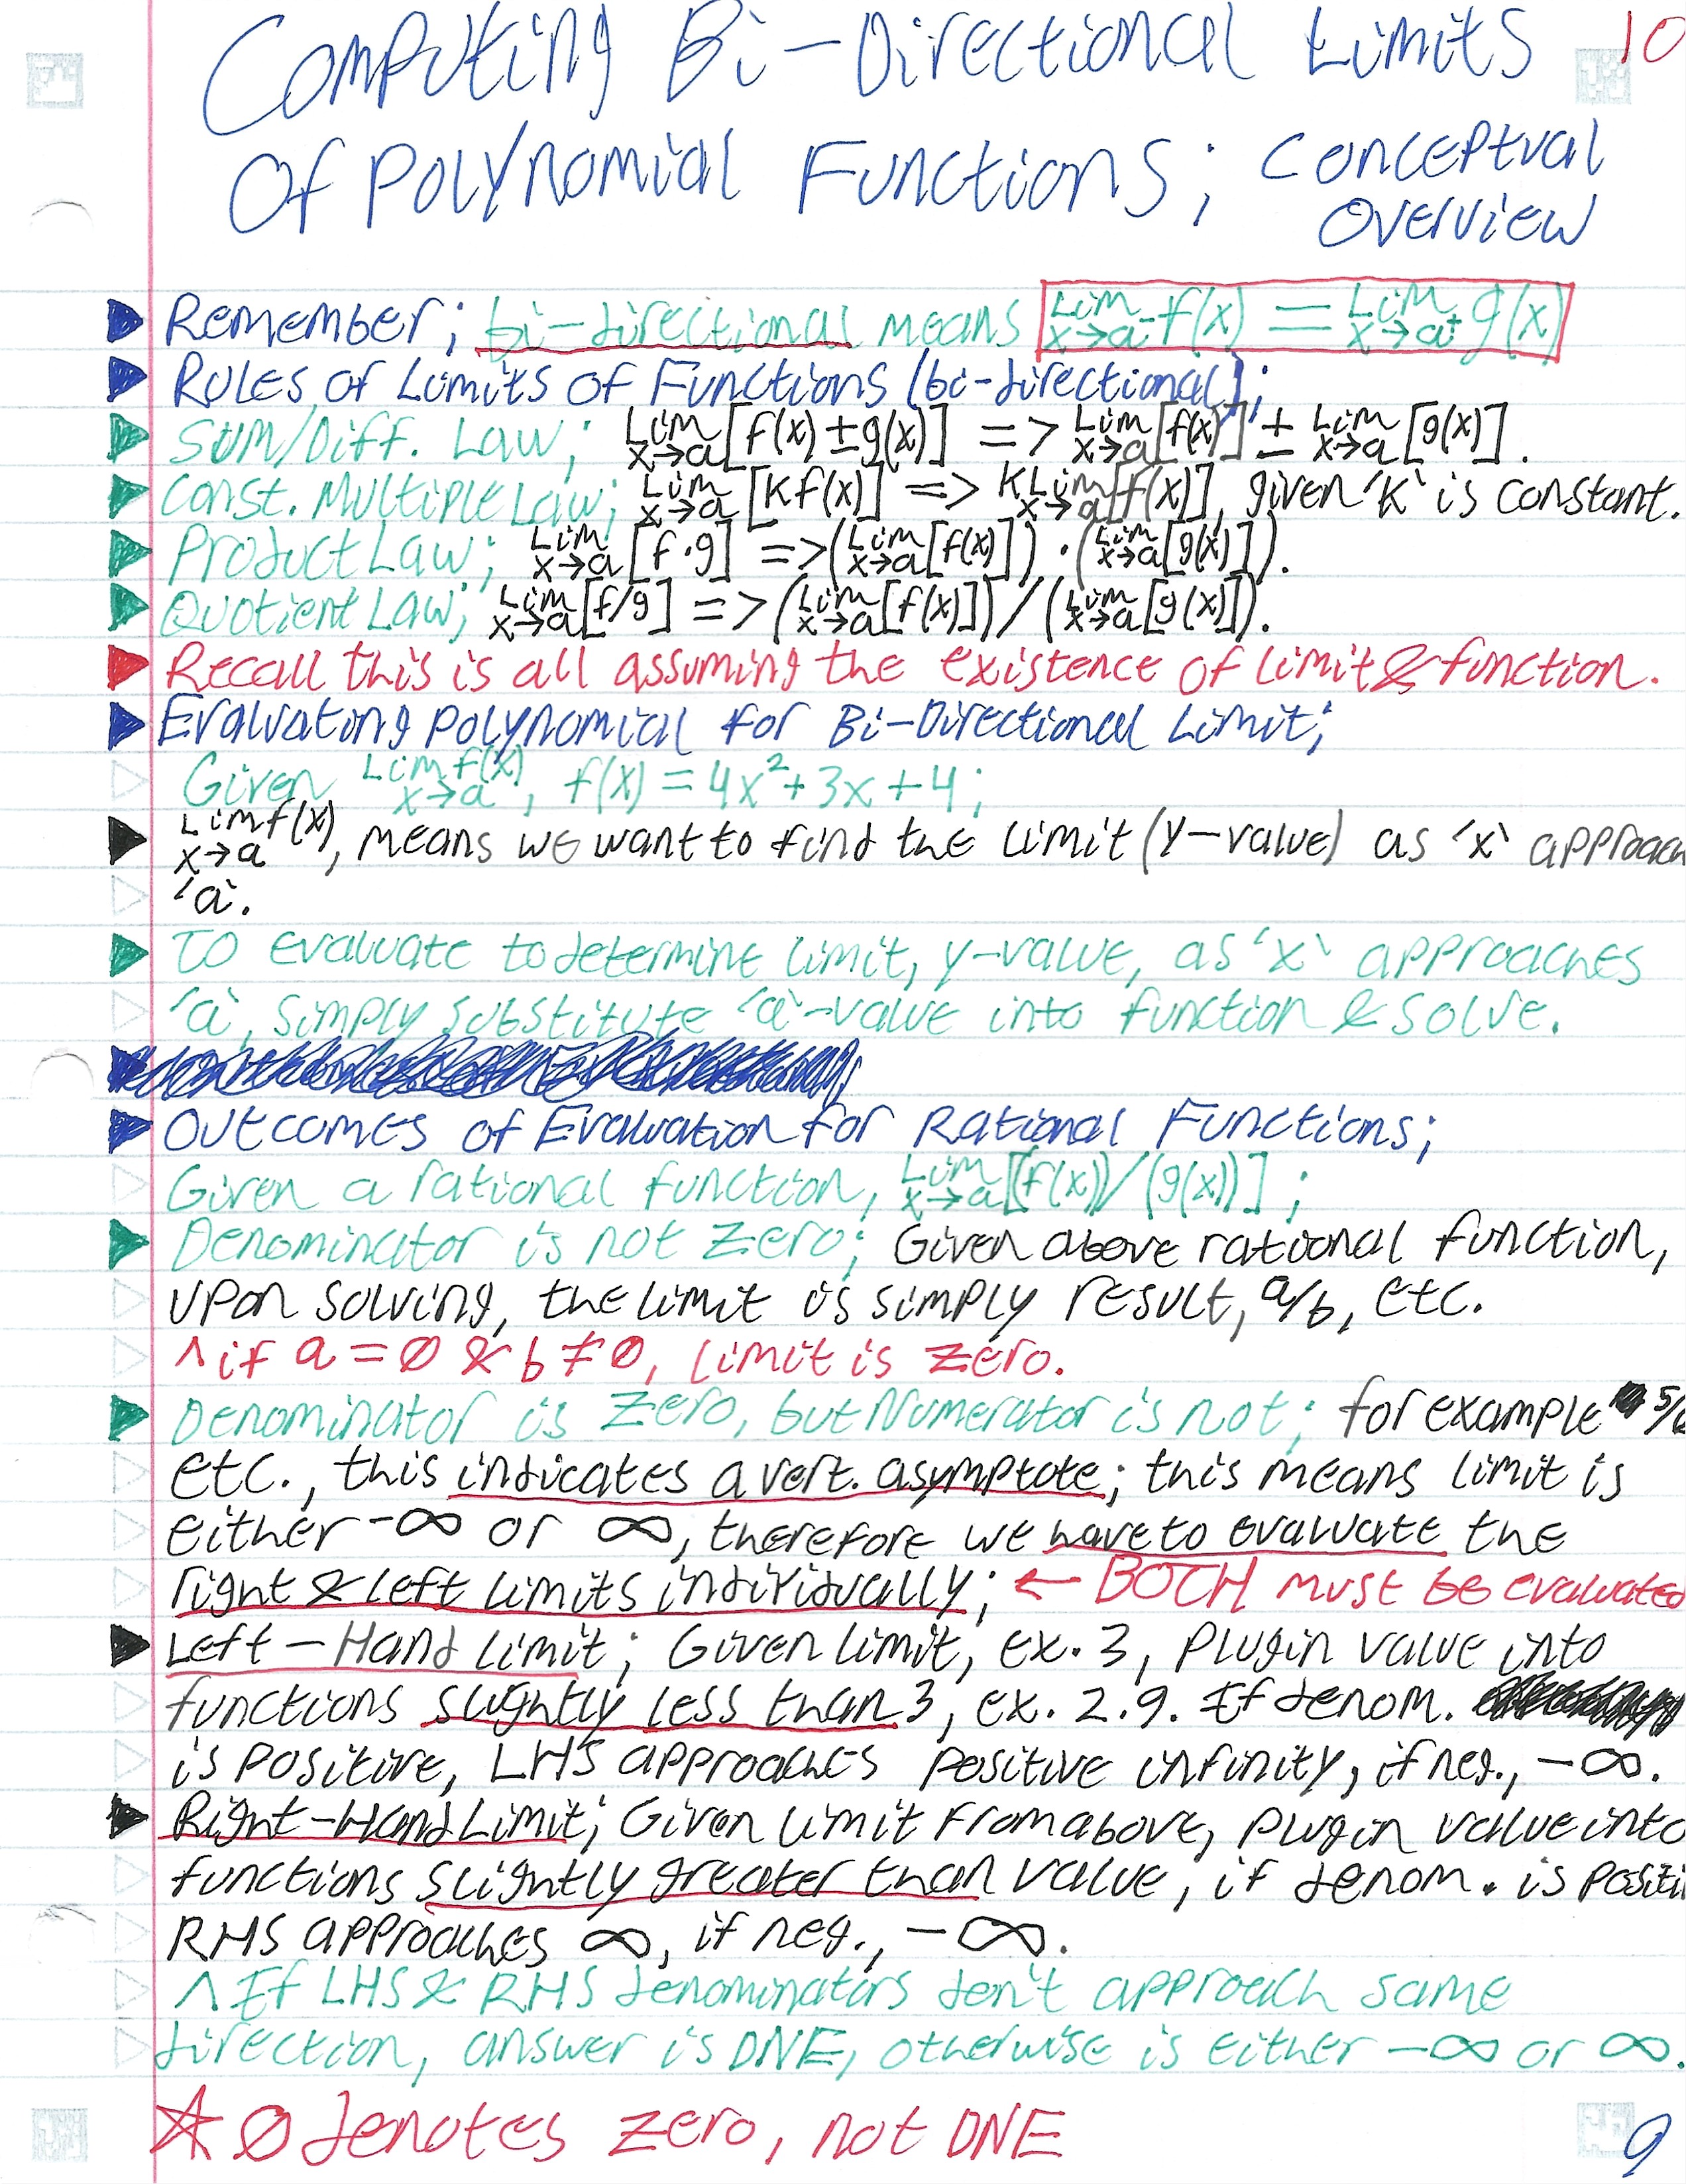 Computing Bi-Directional Limits 10
Of Polynomial Functions; Conceptual
Overview
Remember; bi-directional means Lim x→a⁻ f(x) = Lim x→a⁺ g(x)
Rules of Limits of Functions (bi-directional);
Sum/Diff. Law; Lim x→a [f(x) ± g(x)] => Lim x→a [f(x)] ± Lim x→a [g(x)].
Const. Multiple Law; Lim x→a [Kf(x)] => K Lim x→a [f(x)], given 'K' is constant.
Product Law; Lim x→a [f·g] => (Lim x→a [f(x)]) · (Lim x→a [g(x)]).
Quotient Law; Lim x→a [f/g] => (Lim x→a [f(x)]) / (Lim x→a [g(x)]).
Recall this is all assuming the existence of limit & function.
Evaluating Polynomial for Bi-Directional Limit;
Given Lim x→a f(x), f(x) = 4x² + 3x + 4;
Lim x→a f(x), means we want to find the limit (y-value) as 'x' approach
'a'.
To evaluate to determine limit, y-value, as 'x' approaches
'a', simply substitute 'a'-value into function & solve.
Outcomes of Evaluation for Rational Functions;
Given a rational function, Lim x→a [(f(x))/(g(x))];
Denominator is not zero; Given above rational function,
upon solving, the limit is simply result, a/b, etc.
^ if a = Ø & b ≠ Ø, limit is zero.
Denominator is zero, but Numerator is not; for example
etc., this indicates a vert. asymptote; this means limit is
either -∞ or ∞, therefore we have to evaluate the
right & left limits individually; ← BOTH must be evaluated
Left-Hand Limit; Given limit, ex. 3, plugin value into
functions slightly less than 3, ex. 2.9. If denom.
is positive, LHS approaches positive infinity, if neg., -∞.
Right-Hand Limit; Given limit from above, plugin value into
functions slightly greater than value; if denom. is positi
RHS approaches ∞, if neg., -∞.
^ If LHS & RHS denominators don't approach same
direction, answer is DNE, otherwise is either -∞ or ∞.
☆ Ø denotes zero, not DNE
9